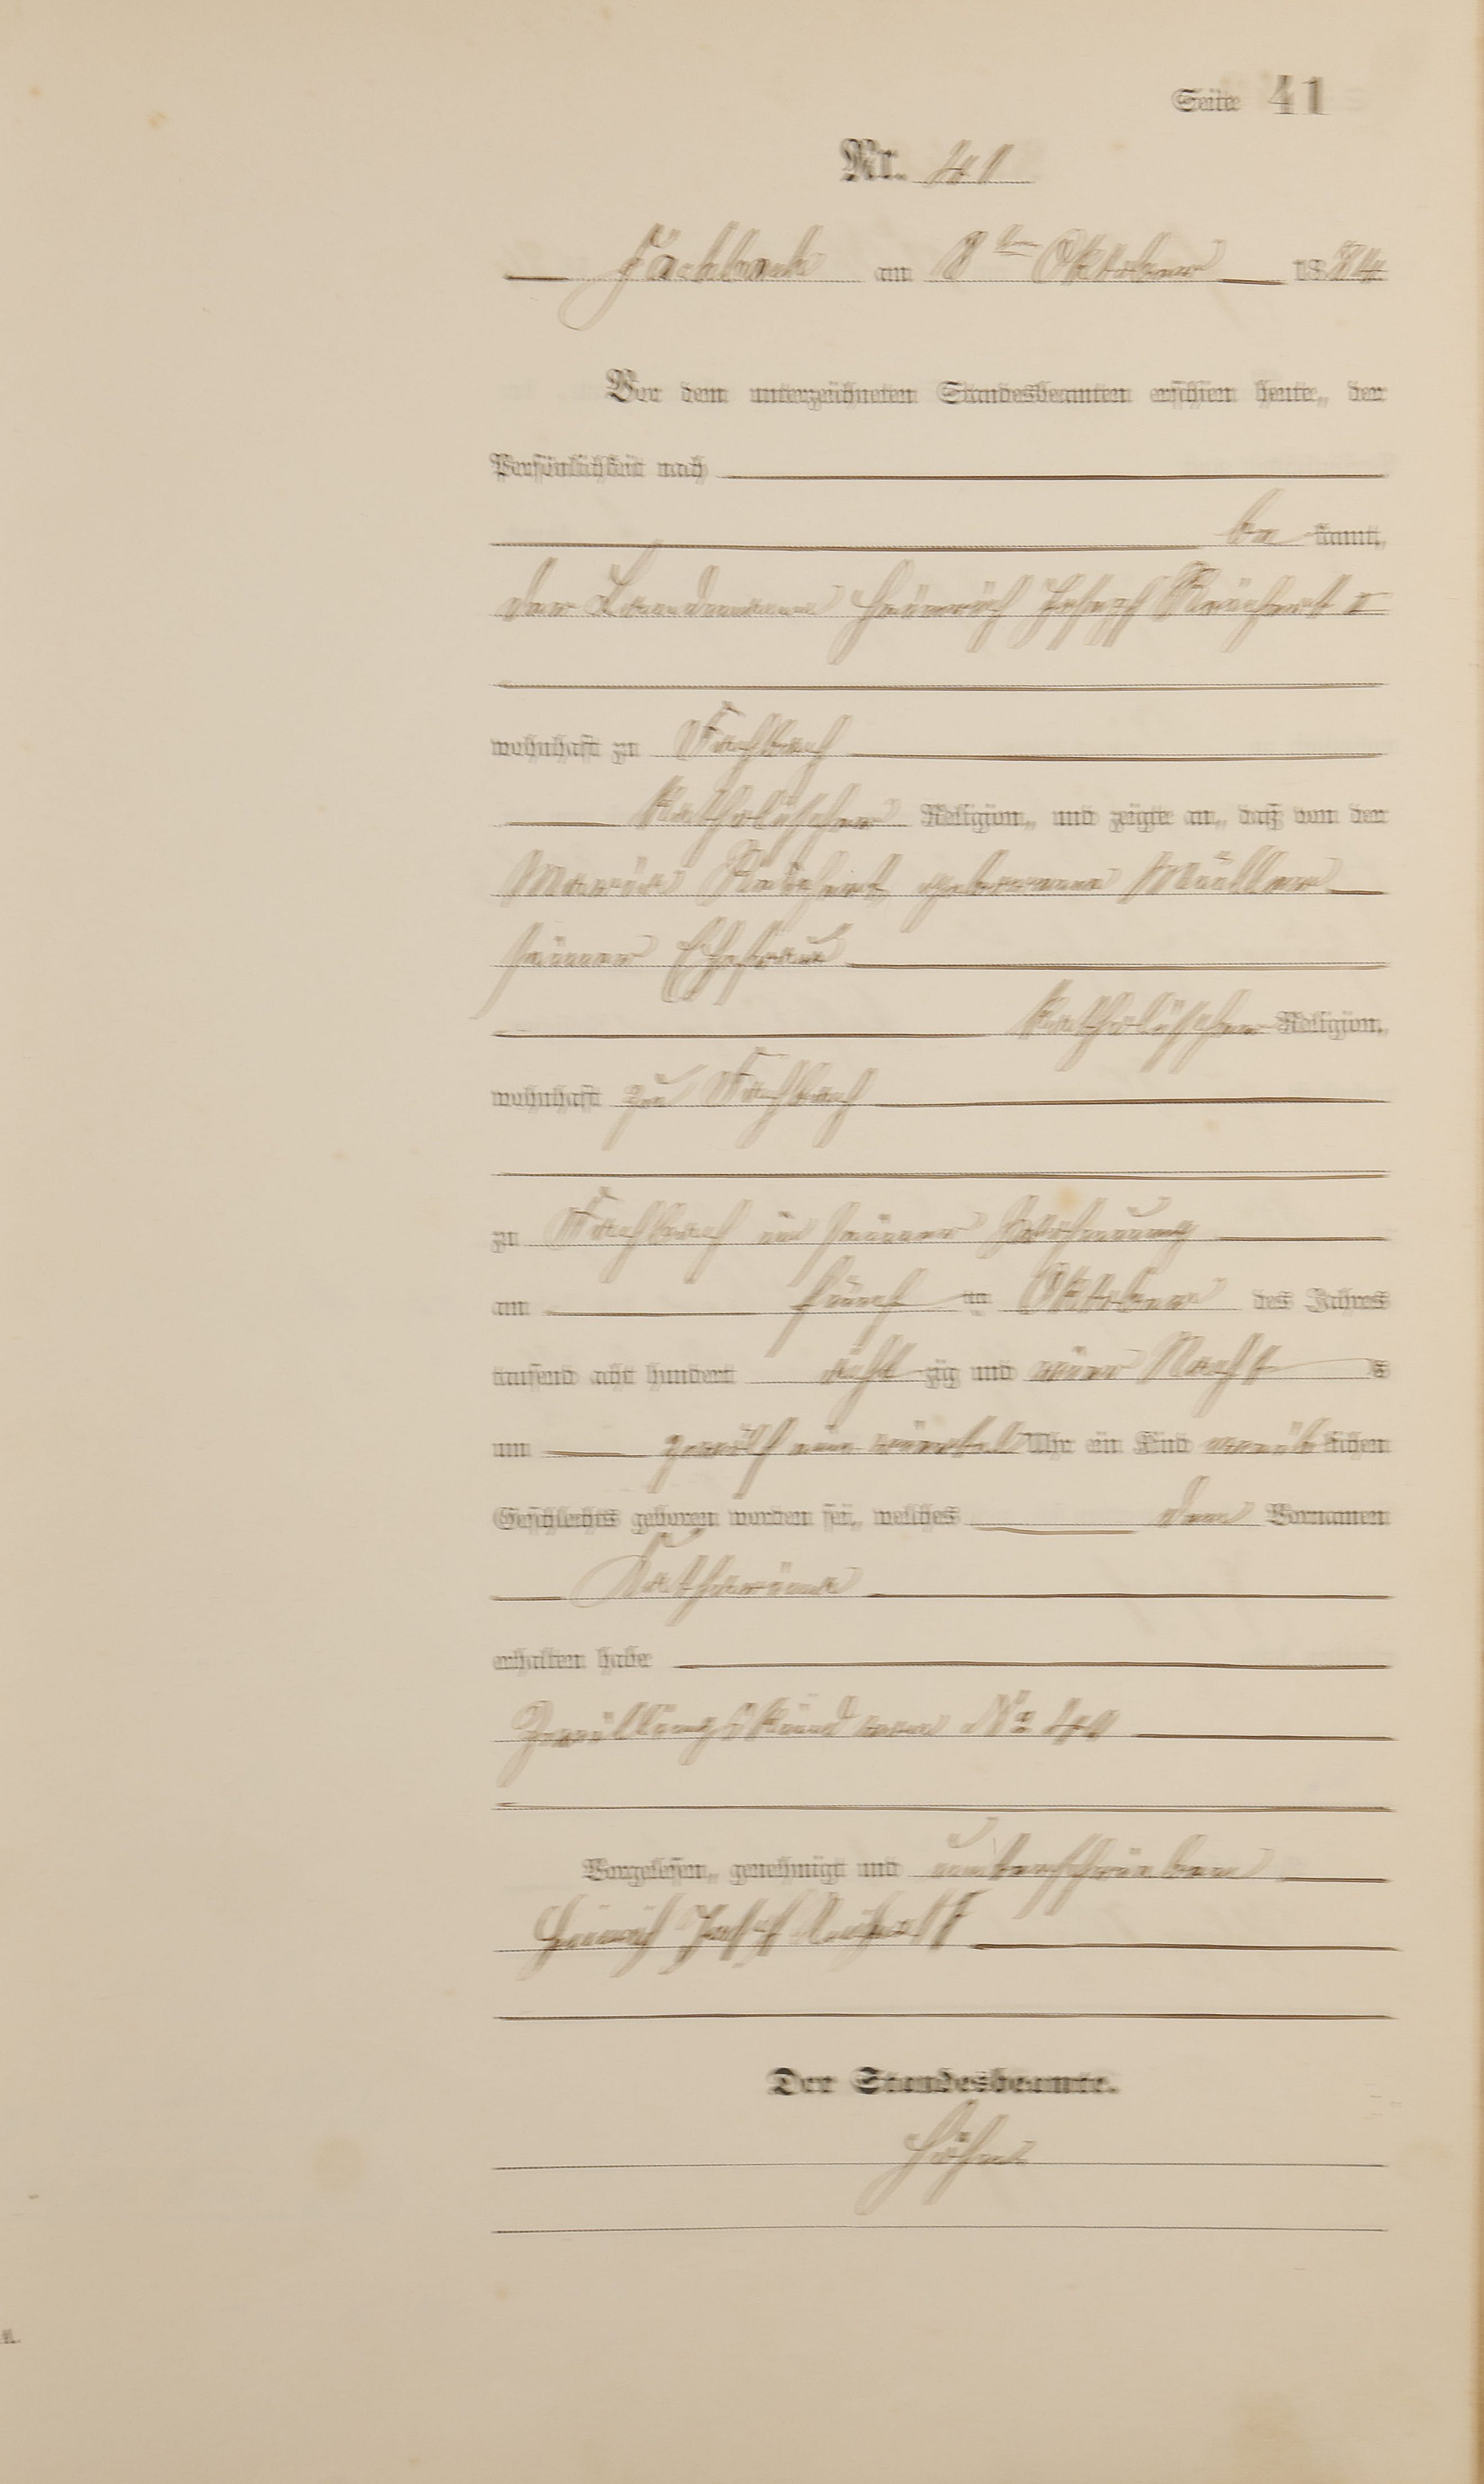 Seite 41
Nr. 41
Fachbach am 8ten Oktober 1884
Vor dem unterzeichneten Standesbeamten erschien heute, der
Persönlichkeit nach
be kannt,
der Landmann Heinrich Joseph Reichert I
wohnhaft zu Fachbach
katholischer Religion, und zeigte an, daß von der
Maria Reichert geborenen Müller
seiner Ehefrau
katholischer Religion,
wohnhaft zu Fachbach
zu Fachbach in seiner Wohnung
am fünf ten Oktober des Jahres
tausend acht hundert acht zig und vier Nacht s
um zwölf ein viertel Uhr ein Kind weib lichen
Geschlechts geboren worden sei, welches den Vornamen
Katharina
erhalten habe
Zwillingskind von No 40
Vorgelesen, genehmigt und unterschrieben
Heinrich Josef Reichert I
Der Standesbeamte.